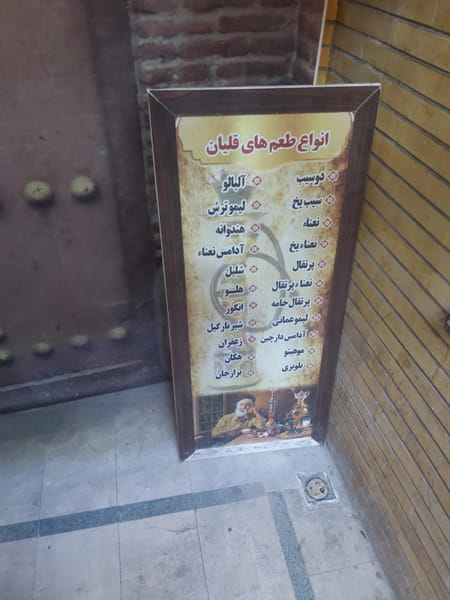 انواع طعم های قلیان
دوسیب
سیب یخ
نعناء
نعناء یخ
پرتقال
نعناء پرتقال
پرتقال خامه
لیمو عمانی
آدامس دارچین
موهیتو
بلوبری
آلبالو
لیمو ترش
هندوانه
آدامس نعناء
شلیل
هلو
انگور
شیر نارگیل
زعفران
هکان
برازجان